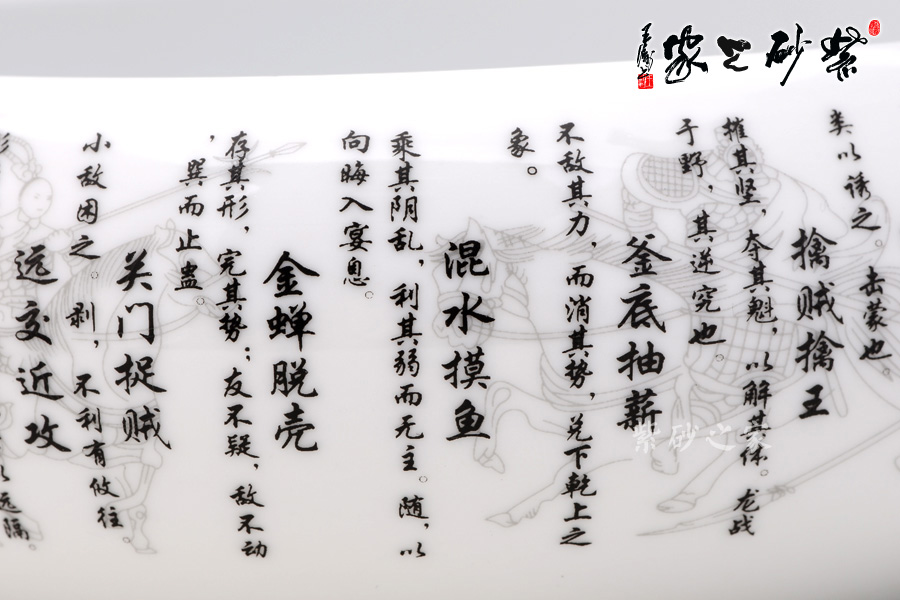 紫砂之家
类以诱之。击蒙也。
擒贼擒王
摧其坚，夺其魁，以解其体。龙战
于野，其逆究也。
釜底抽薪
不敌其力，而消其势，兑下乾上之
象。
混水摸鱼
乘其阴乱，利其弱而无主。随，以
向晦入宴息。
金蝉脱壳
存其形，完其势；友不疑，敌不动
，巽而止蛊。
关门捉贼
小敌困之。剥，不利有攸往
远交近攻
以远隔
紫砂之家